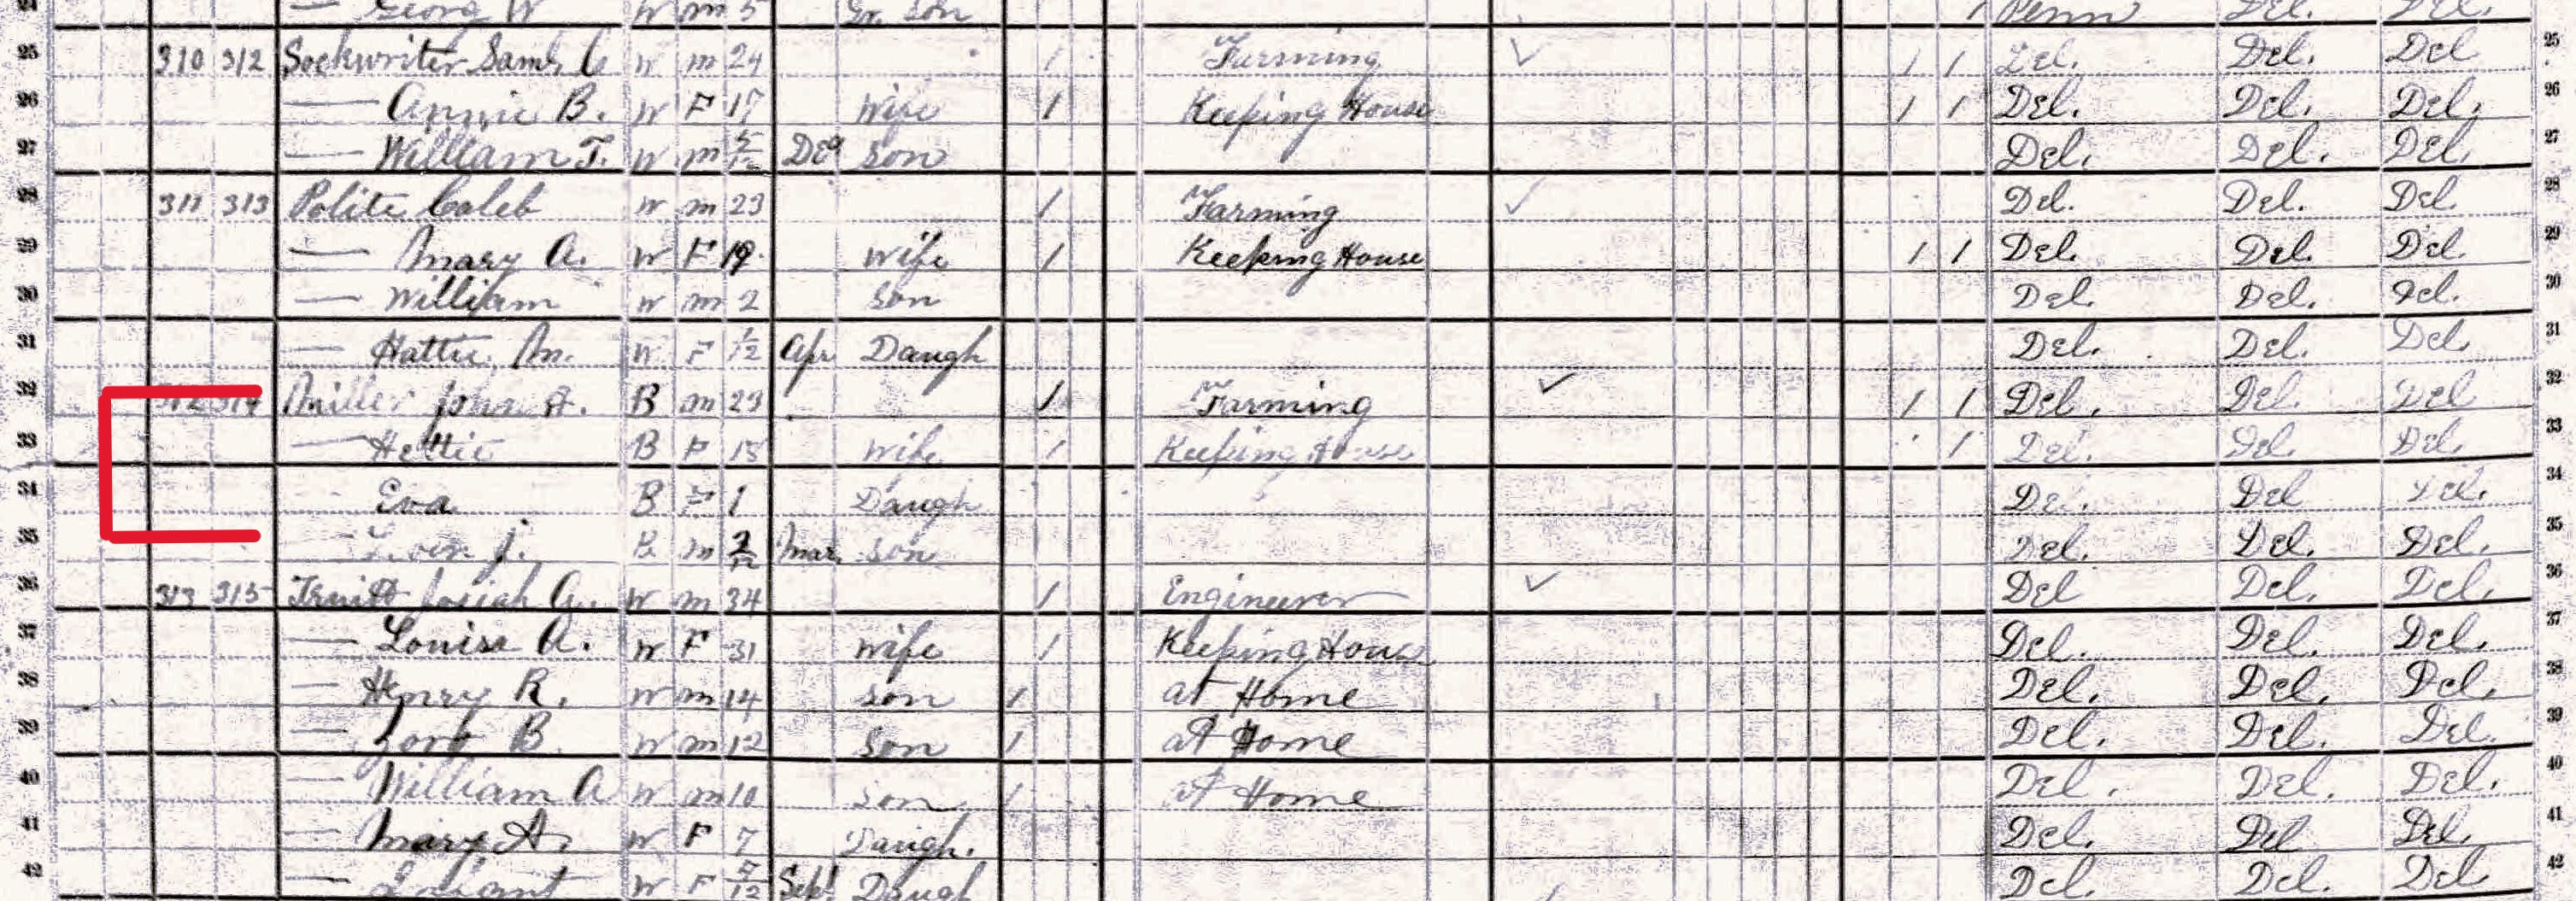 Georg W W m 5 Gr. Son 1 Penn Del. Del.
25 310 312 Sockwriter Saml C W m 24 1 Farming 1 1 Del. Del. Del 25
26 — Annie B. W F 17 Wife 1 Keeping House 1 1 Del. Del. Del. 26
27 — William T. W m 5/12 Dec son Del. Del. Del. 27
28 311 313 Polite Caleb W m 23 1 Farming Del. Del. Del. 28
29 — Mary A. W F 19 Wife 1 Keeping House 1 1 Del. Del. Del. 29
30 — William W m 2 Son Del. Del. Del. 30
31 — Hattie M. W F 1/12 Apr Daugh Del. Del. Del. 31
32 312 314 Miller John H. B m 23 1 Farming 1 1 Del. Del. Del 32
33 — Hettie B F 18 Wife 1 Keeping House 1 Del. Del. Del. 33
34 Eva B F 1 Daugh Del. Del Del. 34
35 J. B m 2/12 Mar. Son Del. Del. Del. 35
36 313 315 Truitt Josiah A. W m 34 1 Engineer Del Del. Del. 36
37 — Louisa A. W F 31 Wife 1 Keeping House Del. Del. Del. 37
38 — Henry R. W m 14 son 1 at Home Del. Del. Del. 38
39 — B W m 12 Son 1 at Home Del. Del. Del. 39
40 — William A W m 10 son 1 at Home Del. Del. Del. 40
41 — Mary A. W F 7 Daugh. Del. Del Del. 41
42 — Infant W F Sept Daugh Del. Del. Del 42